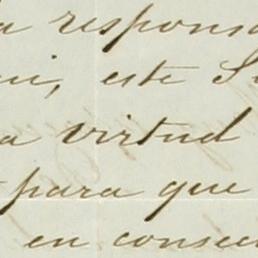 a responsa
ui, este S
a virtud
para que
en consec